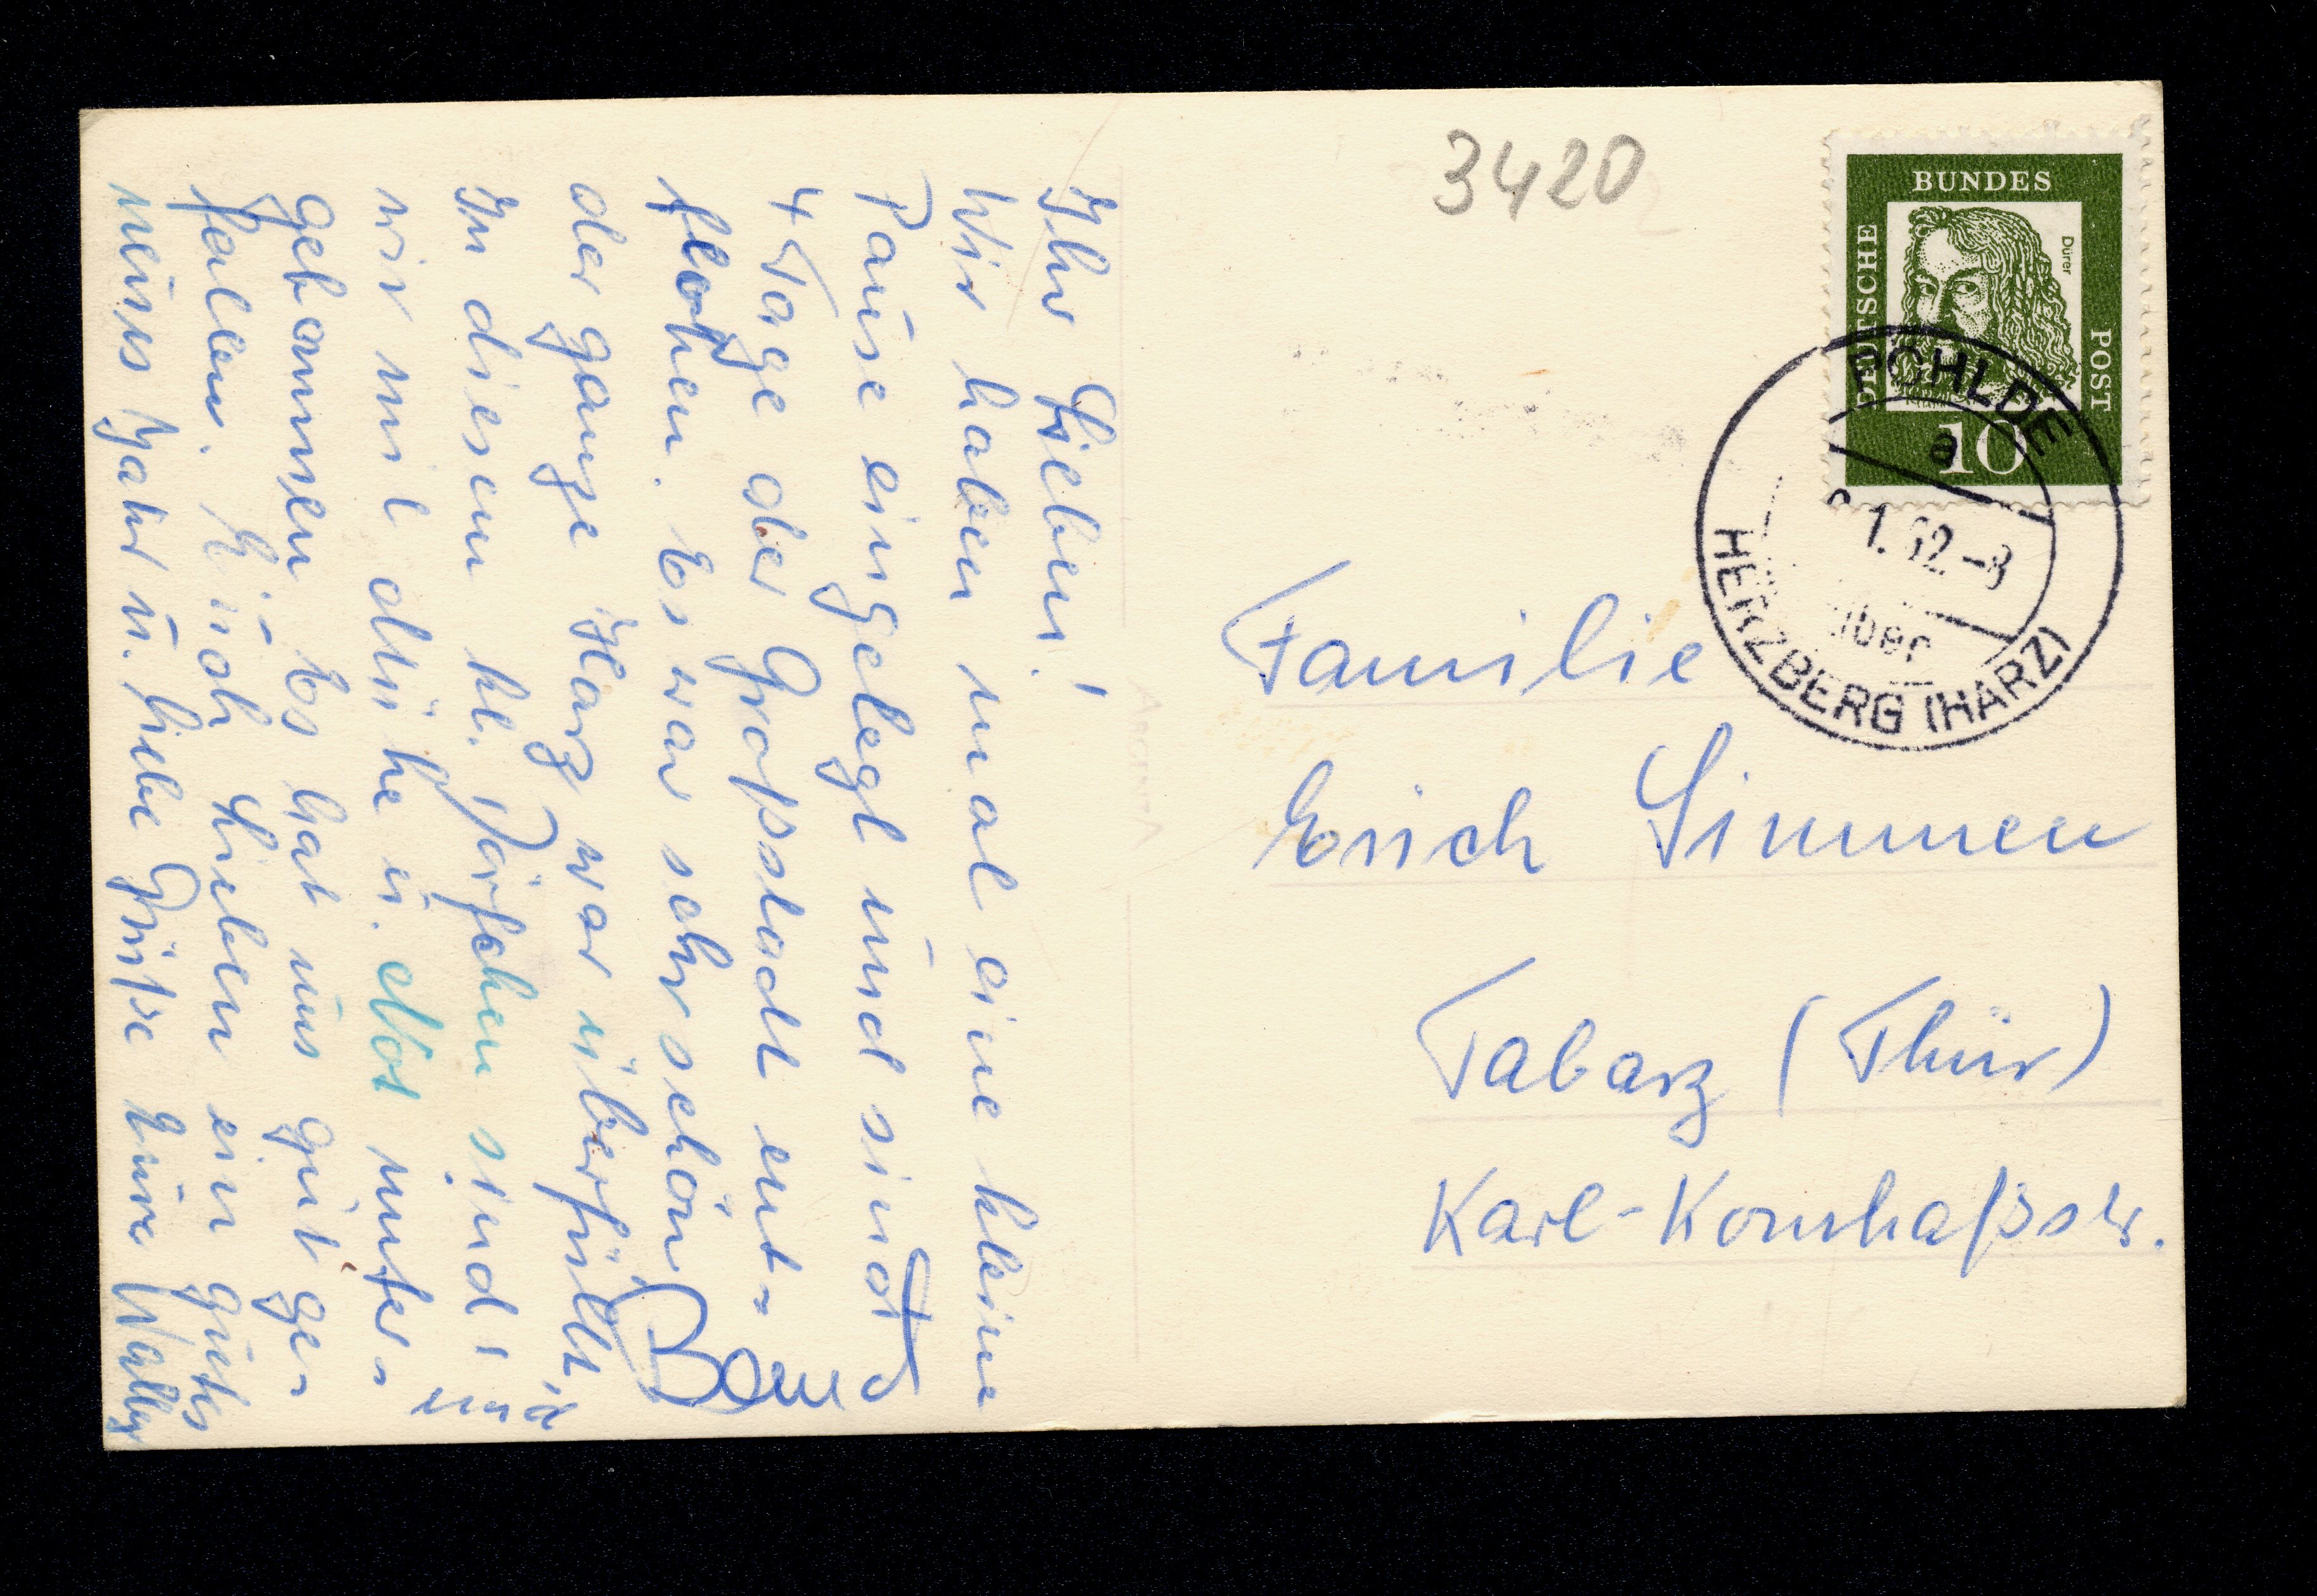 Ihr Lieben!
Wir haben mal eine kleine
Pause eingelegt und sind
4 Tage der Großstadt ent-
flohen. Es war sehr schön
der ganze Harz war überfüllt,
In diesem kl. Dörfchen sind
wir mit u. unter-
gekommen Es hat uns gut ge-
fallen. Euch Lieben ein gutes
neues Jahr u. liebe Grüße Eure Wally
u.
Band
3420
DEUTSCHE
BUNDES
POST
Dürer
10
PÖHLDE
a
1.62-8
über
HERZBERG (HARZ)
Familie
Erich Simmen
Tabarz (Thür)
Karl-Kornhaßstr.